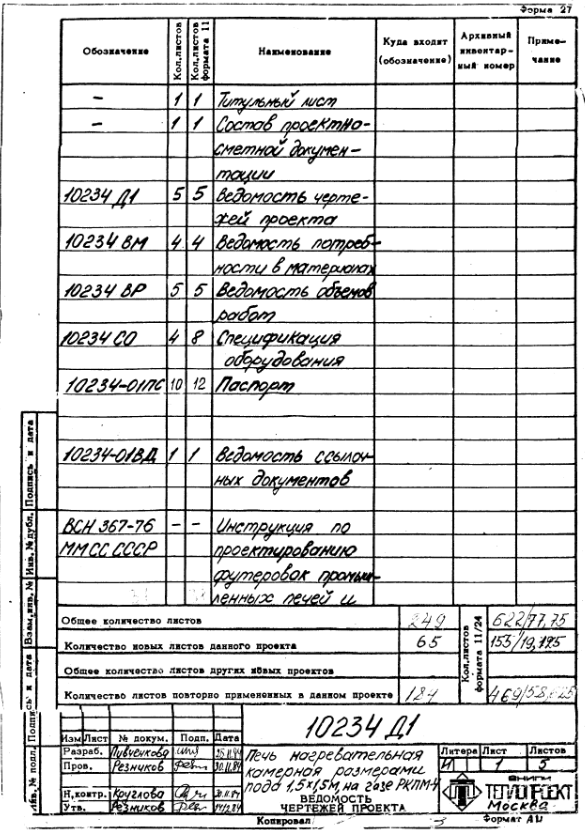 Форма 27
Обозначение
Кол.листов
Кол.листов формата 11
Наименование
Куда входит (обозначение)
Архивный инвентар- ный номер
Приме- чание
— 1 1 Титульный лист
— 1 1 Состав проектно-
сметной докумен-
тации
10234 Д1 5 5 Ведомость черте-
жей проекта
10234 ВМ 4 4 Ведомость потреб-
ности в материалах
10234 ВР 5 5 Ведомость объемов
работ
10234 СО 4 8 Спецификация
оборудования
10234-01ПС 10 12 Паспорт
10234-01ВД 1 1 Ведомость ссылоч-
ных документов
ВСН 367-76 – – Инструкция по
ММСС СССР проектированию
футеровок промыш-
ленных печей и
Общее количество листов 249
Количество новых листов данного проекта 65
Общее количество листов других новых проектов
Количество листов повторно примененных в данном проекте 184
Кол.листов формата 11/24
622/77,75
153/19,125
469/58,625
Подпись и дата
Инв.№дубл.
Взам.инв.№
Подпись и дата
Инв.№ подл.
10234 Д1
Изм Лист № докум. Подп. Дата
Разраб.
Пров. Резников 30.11.84
Н.контр. Круглова
Утв. Резников
Печь нагревательная
камерная размерами
пода 1,5х1,5м, на газе РКПМ-4
ВЕДОМОСТЬ
ЧЕРТЕЖЕЙ ПРОЕКТА
Литера Лист Листов
И 1 5
ВНИПИ
ТЕПЛОПРОЕКТ
Москва
Копировал
Формат А4